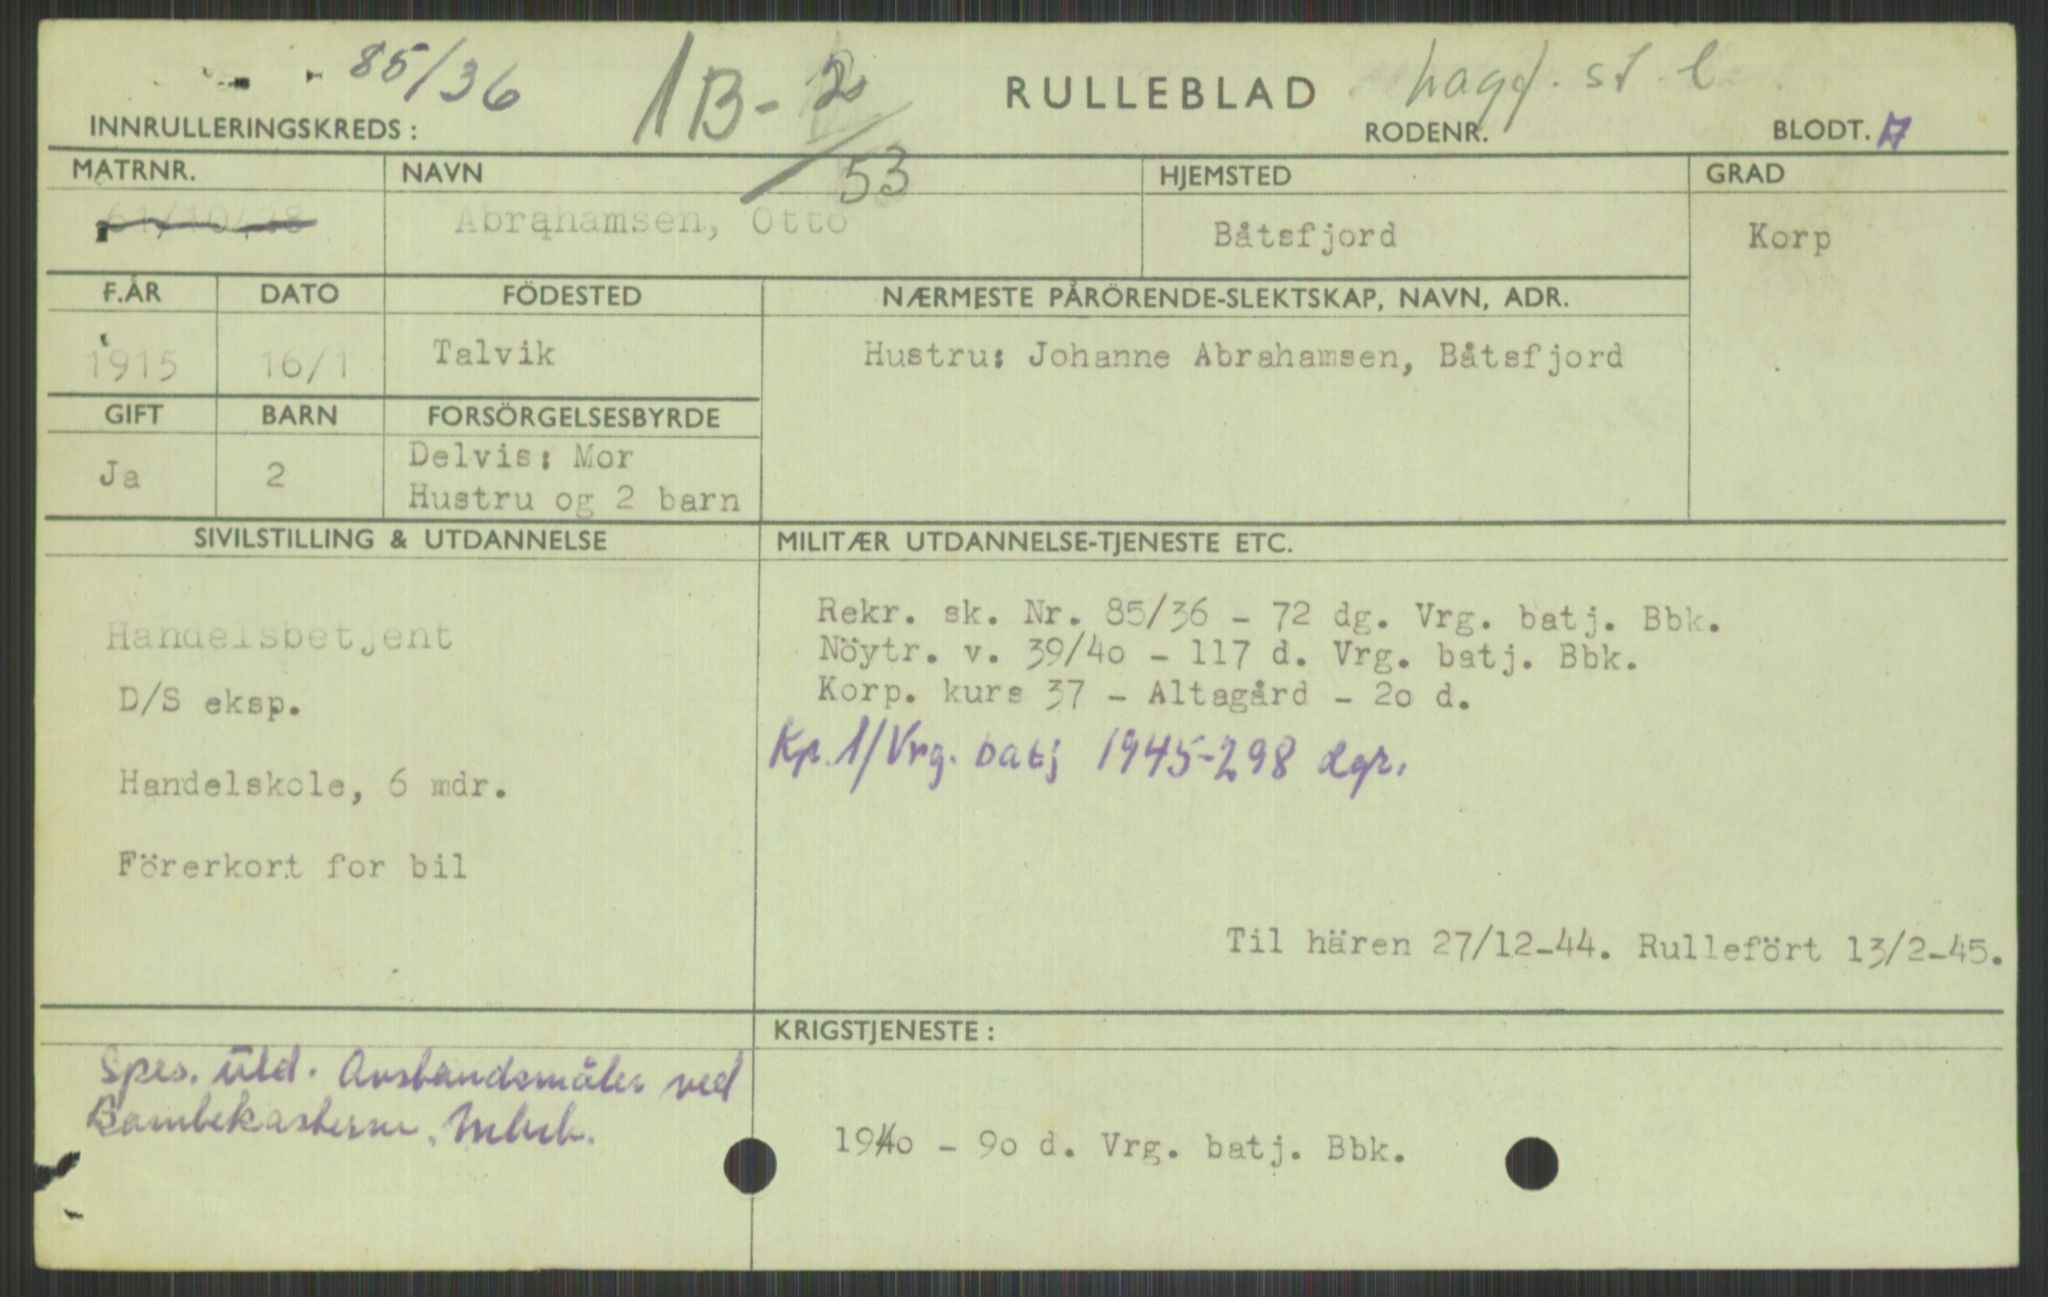 85/36
1B-2/53
RULLEBLAD
INNRULLERINGSKREDS:
RODENR.
BLODT. A
MATRNR.
NAVN
HJEMSTED
GRAD
61/10438
Abrahamsen, Otto
Båtsfjord
Korp
F.ÅR
DATO
FÖDESTED
NÆRMESTE PÅRÖRENDE-SLEKTSKAP, NAVN, ADR.
1915
16/1
Talvik
Hustru: Johanne Abrahamsen, Båtsfjord
GIFT
BARN
FORSÖRGELSESBYRDE
Ja
2
Delvis: Mor
Hustru og 2 barn
SIVILSTILLING & UTDANNELSE
MILITÆR UTDANNELSE-TJENESTE ETC.
Handelsbetjent
D/S eksp.
Handelskole, 6 mdr.
Förerkort for bil
Rekr. sk. Nr. 85/36 - 72 dg. Vrg. batj. Bbk.
Nöytr. v. 39/40 - 117 d. Vrg. batj. Bbk.
Korp. kurs 37 - Altagård - 20 d.
Kp. 1/Vrg. batj 1945-298 dgr.
Til hären 27/12-44. Rullefört 13/2-45.
KRIGSTJENESTE:
Spes. utd. Avstandsmåler ved
Bombekasterne.
1940 - 90 d. Vrg. batj. Bbk.